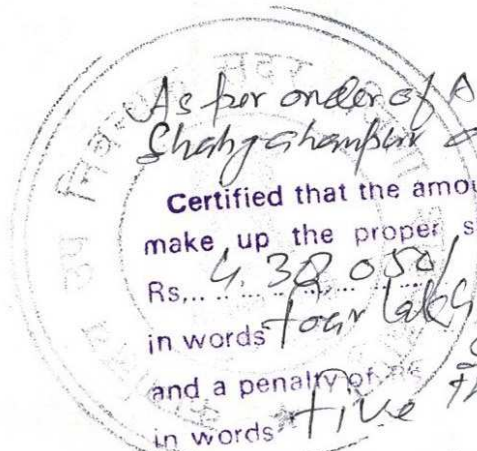 As per order of A
Shahjahanpur
Certified that the amou
make up the proper s
Rs,... 4,38,050/
in words four lakh
and a penalty of Rs
in words five th